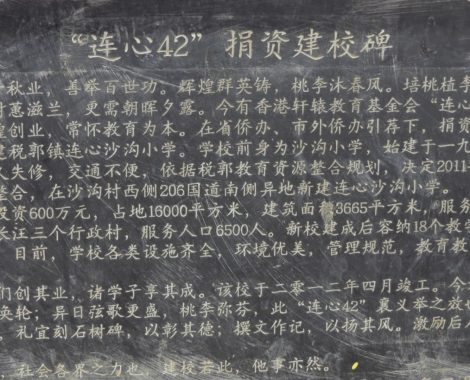 “连心42”捐资建校碑
秋业，善举百世功。辉煌群英铸，桃李沐春风。培桃植李
蕙滋兰，更需朝晖夕露。今有香港轩辕教育基金会“连心
创业，常怀教育为本。在省侨办、市外侨办引荐下，捐资
建税郭镇连心沙沟小学。学校前身为沙沟小学，始建于一九
人失修，交通不便，依据税郭教育资源整合规划，决定2011
整合，在沙沟村西侧206国道南侧异地新建连心沙沟小学。
投资600万元，占地16000平方米，建筑面积3665平方米，服务
长汪三个行政村，服务人口6500人。新校建成后容纳18个教学
目前，学校各类设施齐全，环境优美，管理规范，教育教
们创其业，诸学子享其成。该校于二零一二年四月竣工。今
英轮；异日弦歌更盛，桃李弥芬，此“连心42”襄义举之效
，礼宜刻石树碑，以彰其德；撰文作记，以扬其风。激励后
，社会各界之力也，建校若此，他事亦然。